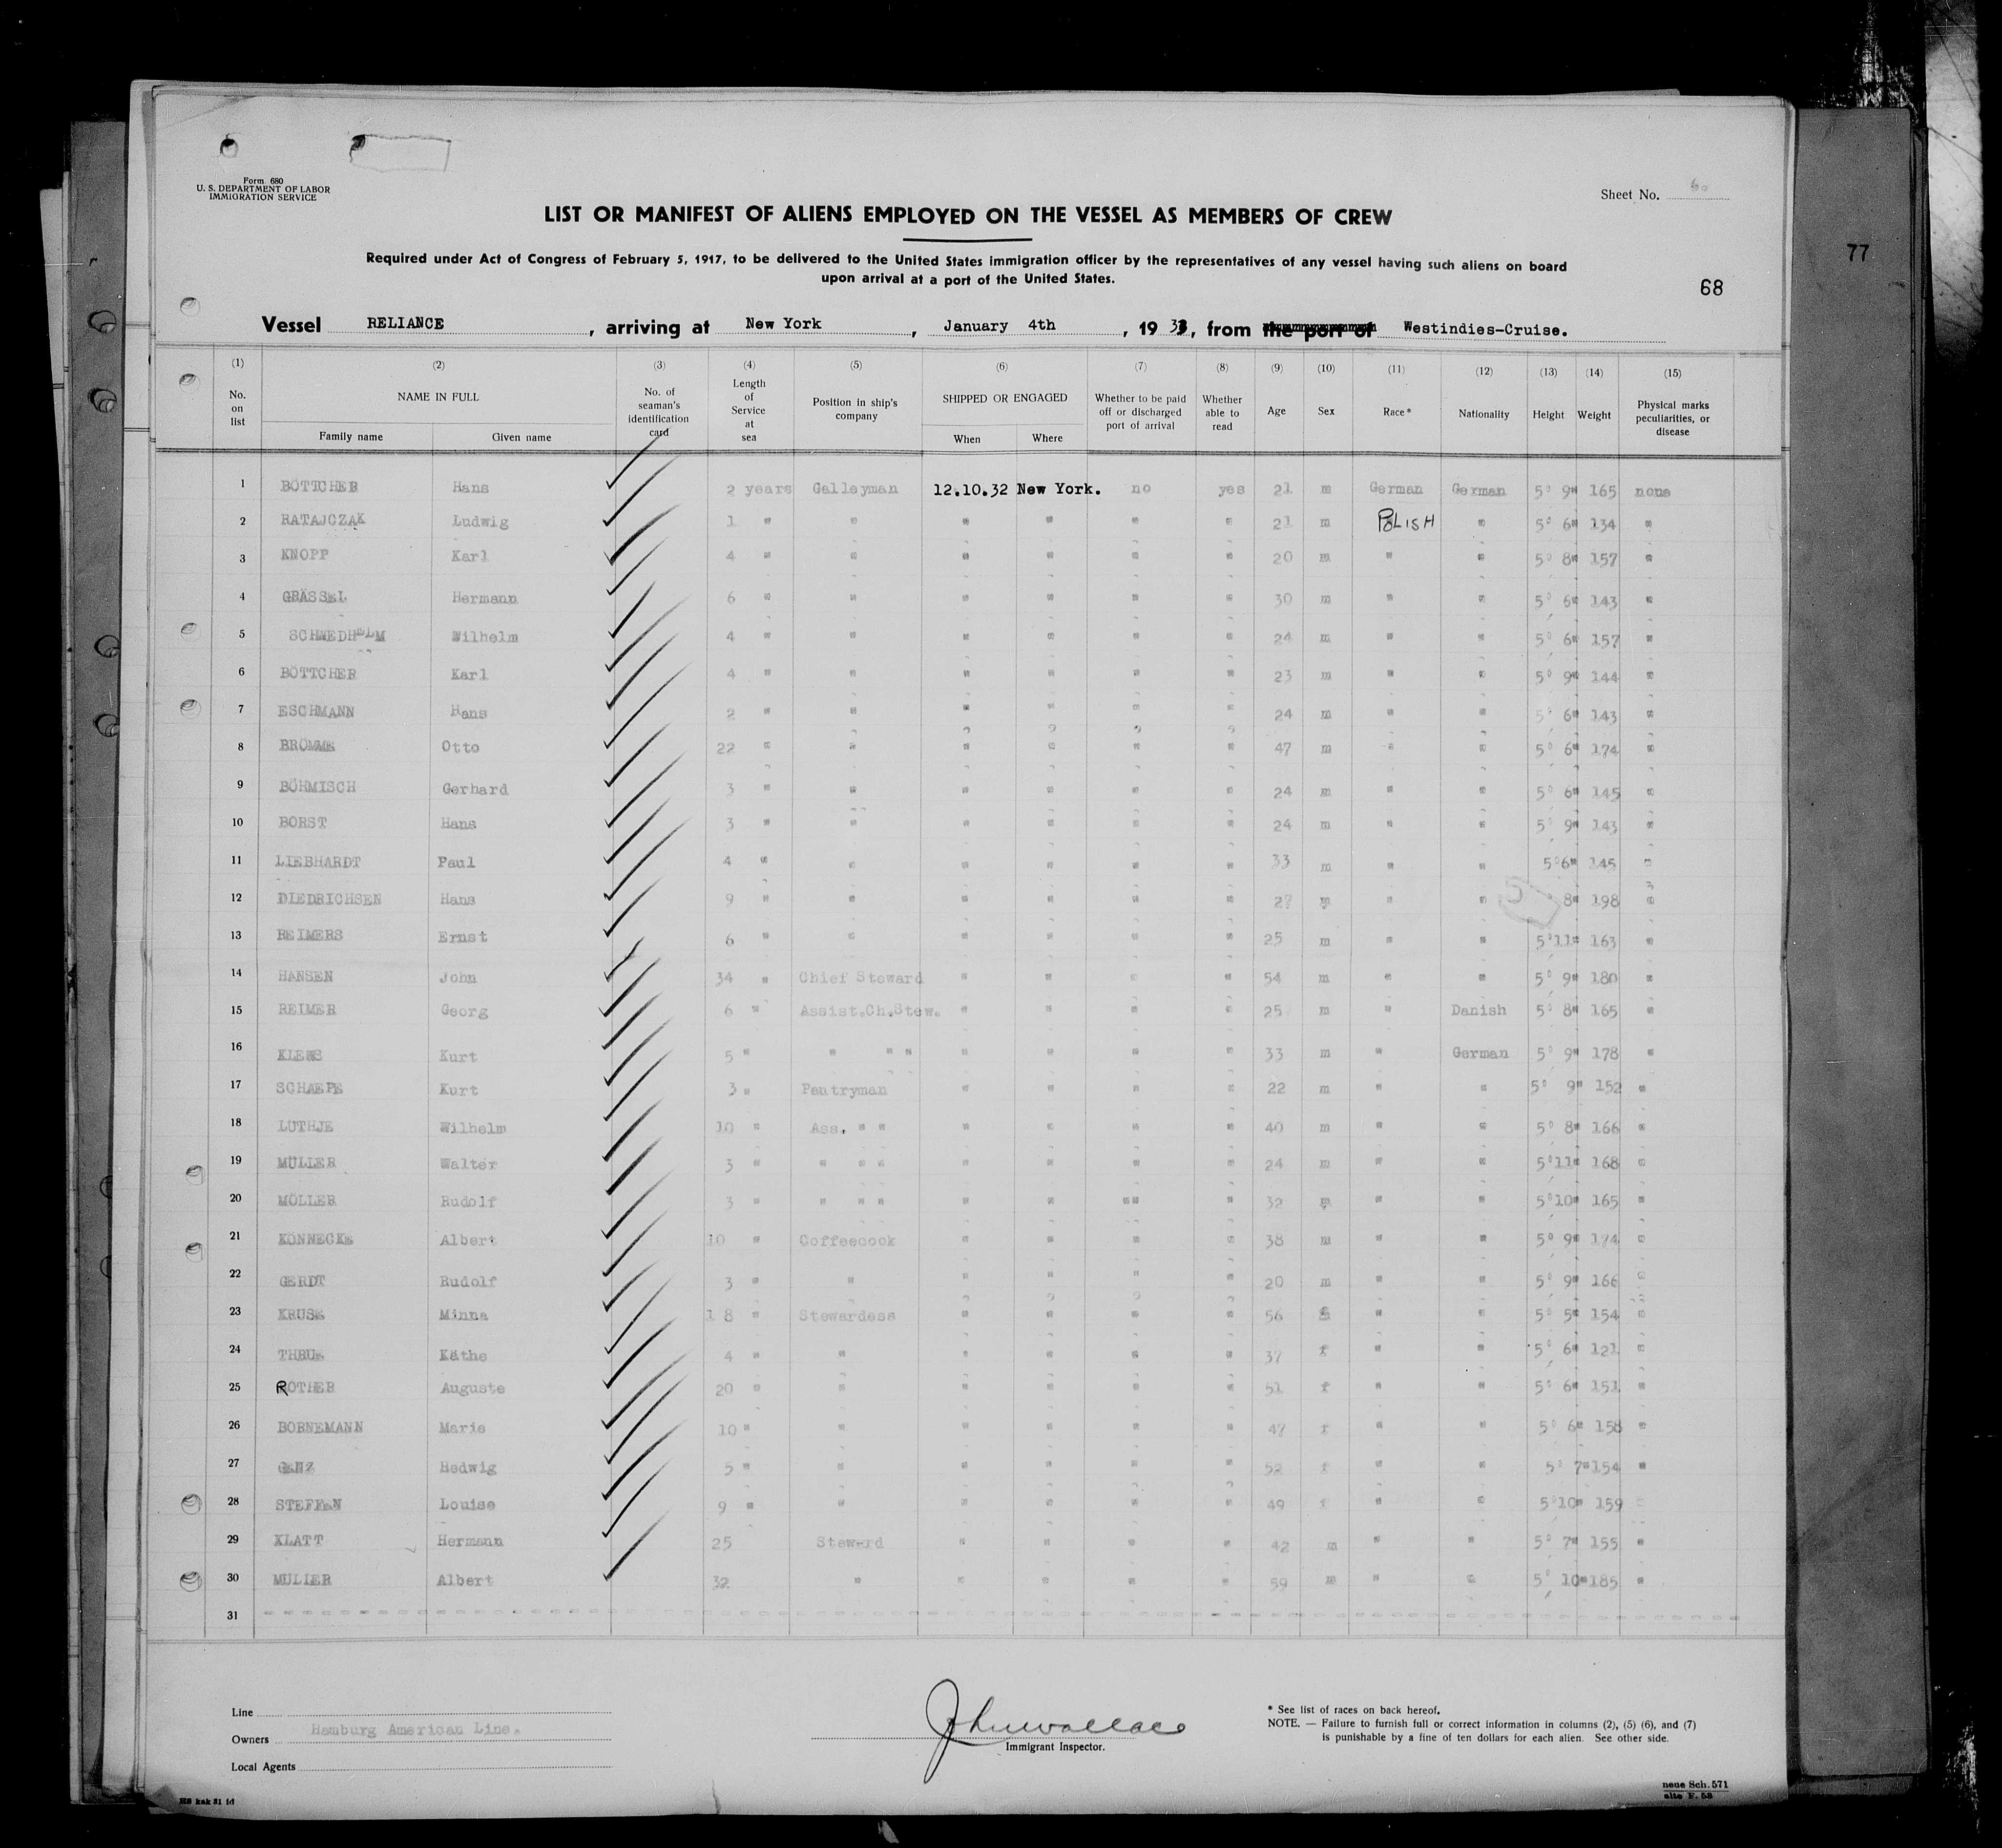 Form 680
U. S. DEPARTMENT OF LABOR
IMMIGRATION SERVICE
Sheet No.
LIST OR MANIFEST OF ALIENS EMPLOYED ON THE VESSEL AS MEMBERS OF CREW
Required under Act of Congress of February 5, 1917, to be delivered to the United States immigration officer by the representatives of any vessel having such aliens on board
upon arrival at a port of the United States.
77
68
Vessel RELIANCE, arriving at New York, January 4th, 1933, from the port of Westindies-Cruise.
(1) (2) (3) (4) (5) (6) (7) (8) (9) (10) (11) (12) (13) (14) (15)
No. on list NAME IN FULL Family name Given name No. of seaman's identification card Length of Service at sea Position in ship's company SHIPPED OR ENGAGED When Where Whether to be paid off or discharged port of arrival Whether able to read Age Sex Race* Nationality Height Weight Physical marks peculiarities, or disease
1 BÖTTCHER Hans 2 years Galleyman 12.10.32 New York. no yes 21 m German German 5° 9" 165 none
2 RATAJCZAK Ludwig 1 " " " " " " 21 m POLISH " 5° 6" 134 "
3 KNOPP Karl 4 " " " " " " 20 m " " 5° 8" 157 "
4 GRÄSSEL Hermann 6 " " " " " " 30 m " " 5° 6" 143 "
5 SCHMEDHELM Wilhelm 4 " " " " " " 24 m " " 5° 6" 157 "
6 BÖTTCHER Karl 4 " " " " " " 23 m " " 5° 9" 144 "
7 ESCHMANN Hans 2 " " " " " " 24 m " " 5° 6" 143 "
8 BRÖMME Otto 22 " " " " " " 47 m " " 5° 6" 174 "
9 BÖHMISCH Gerhard 3 " " " " " " 24 m " " 5° 6" 145 "
10 BORST Hans 3 " " " " " " 24 m " " 5° 9" 143 "
11 LIEBHARDT Paul 4 " " " " " " 33 m " " 5°6" 145 "
12 DIEDRICHSEN Hans 9 " " " " " " m " " 8" 198 "
13 REIMERS Ernst 6 " " " " " " 25 m " " 5°11" 163 "
14 HANSEN John 34 " Chief Steward " " " " 54 m " " 5° 9" 180 "
15 REIMER Georg 6 " Assist.Ch.Stew. " " " " 25 m " Danish 5° 8" 165 "
16 Kurt 5 " " " " " " " " 33 m " German 5° 9" 178 "
17 SCHAEPE Kurt 3 " Pantryman " " " " 22 m " " 5° 9" 152 "
18 LÜTHJE Wilhelm 10 " Ass. " " " " " " 40 m " " 5° 8" 166 "
19 MÜLLER Walter 3 " " " " " " " " 24 m " " 5°11" 168 "
20 MÖLLER Rudolf 3 " " " " " " "" " 32 m " " 5°10" 165 "
21 KÖNNECKE Albert 10 " Coffeecook " " " " 38 m " " 5° 9" 174 "
22 GERDT Rudolf 3 " " " " " " 20 m " " 5° 9" 166 "
23 KRUSE Minna 18 " Stewardess " " " " 56 f " " 5° 5" 154 "
24 Käthe 4 " " " " " " 37 f " " 5° 6" 121 "
25 ROTHER Auguste 20 " " " " " " 51 f " " 5° 6" 151 "
26 BORNEMANN Marie 10 " " " " " " 47 f " " 5° 6" 158 "
27 GENZ Hedwig 5 " " " " " " 52 f " " 5° 7" 154 "
28 STEFFEN Louise 9 " " " " " " 49 f " " 5°10" 159 "
29 KLATT Hermann 25 Steward " " " " 42 m " " 5° 7" 155 "
30 MÜLLER Albert 32 " " " " " 59 m " " 5° 10" 185 "
31
Line
Owners Hamburg American Line.
Local Agents
Immigrant Inspector.
* See list of races on back hereof.
NOTE. — Failure to furnish full or correct information in columns (2), (5) (6), and (7)
is punishable by a fine of ten dollars for each alien. See other side.
neue Sch. 571
alte F. 58